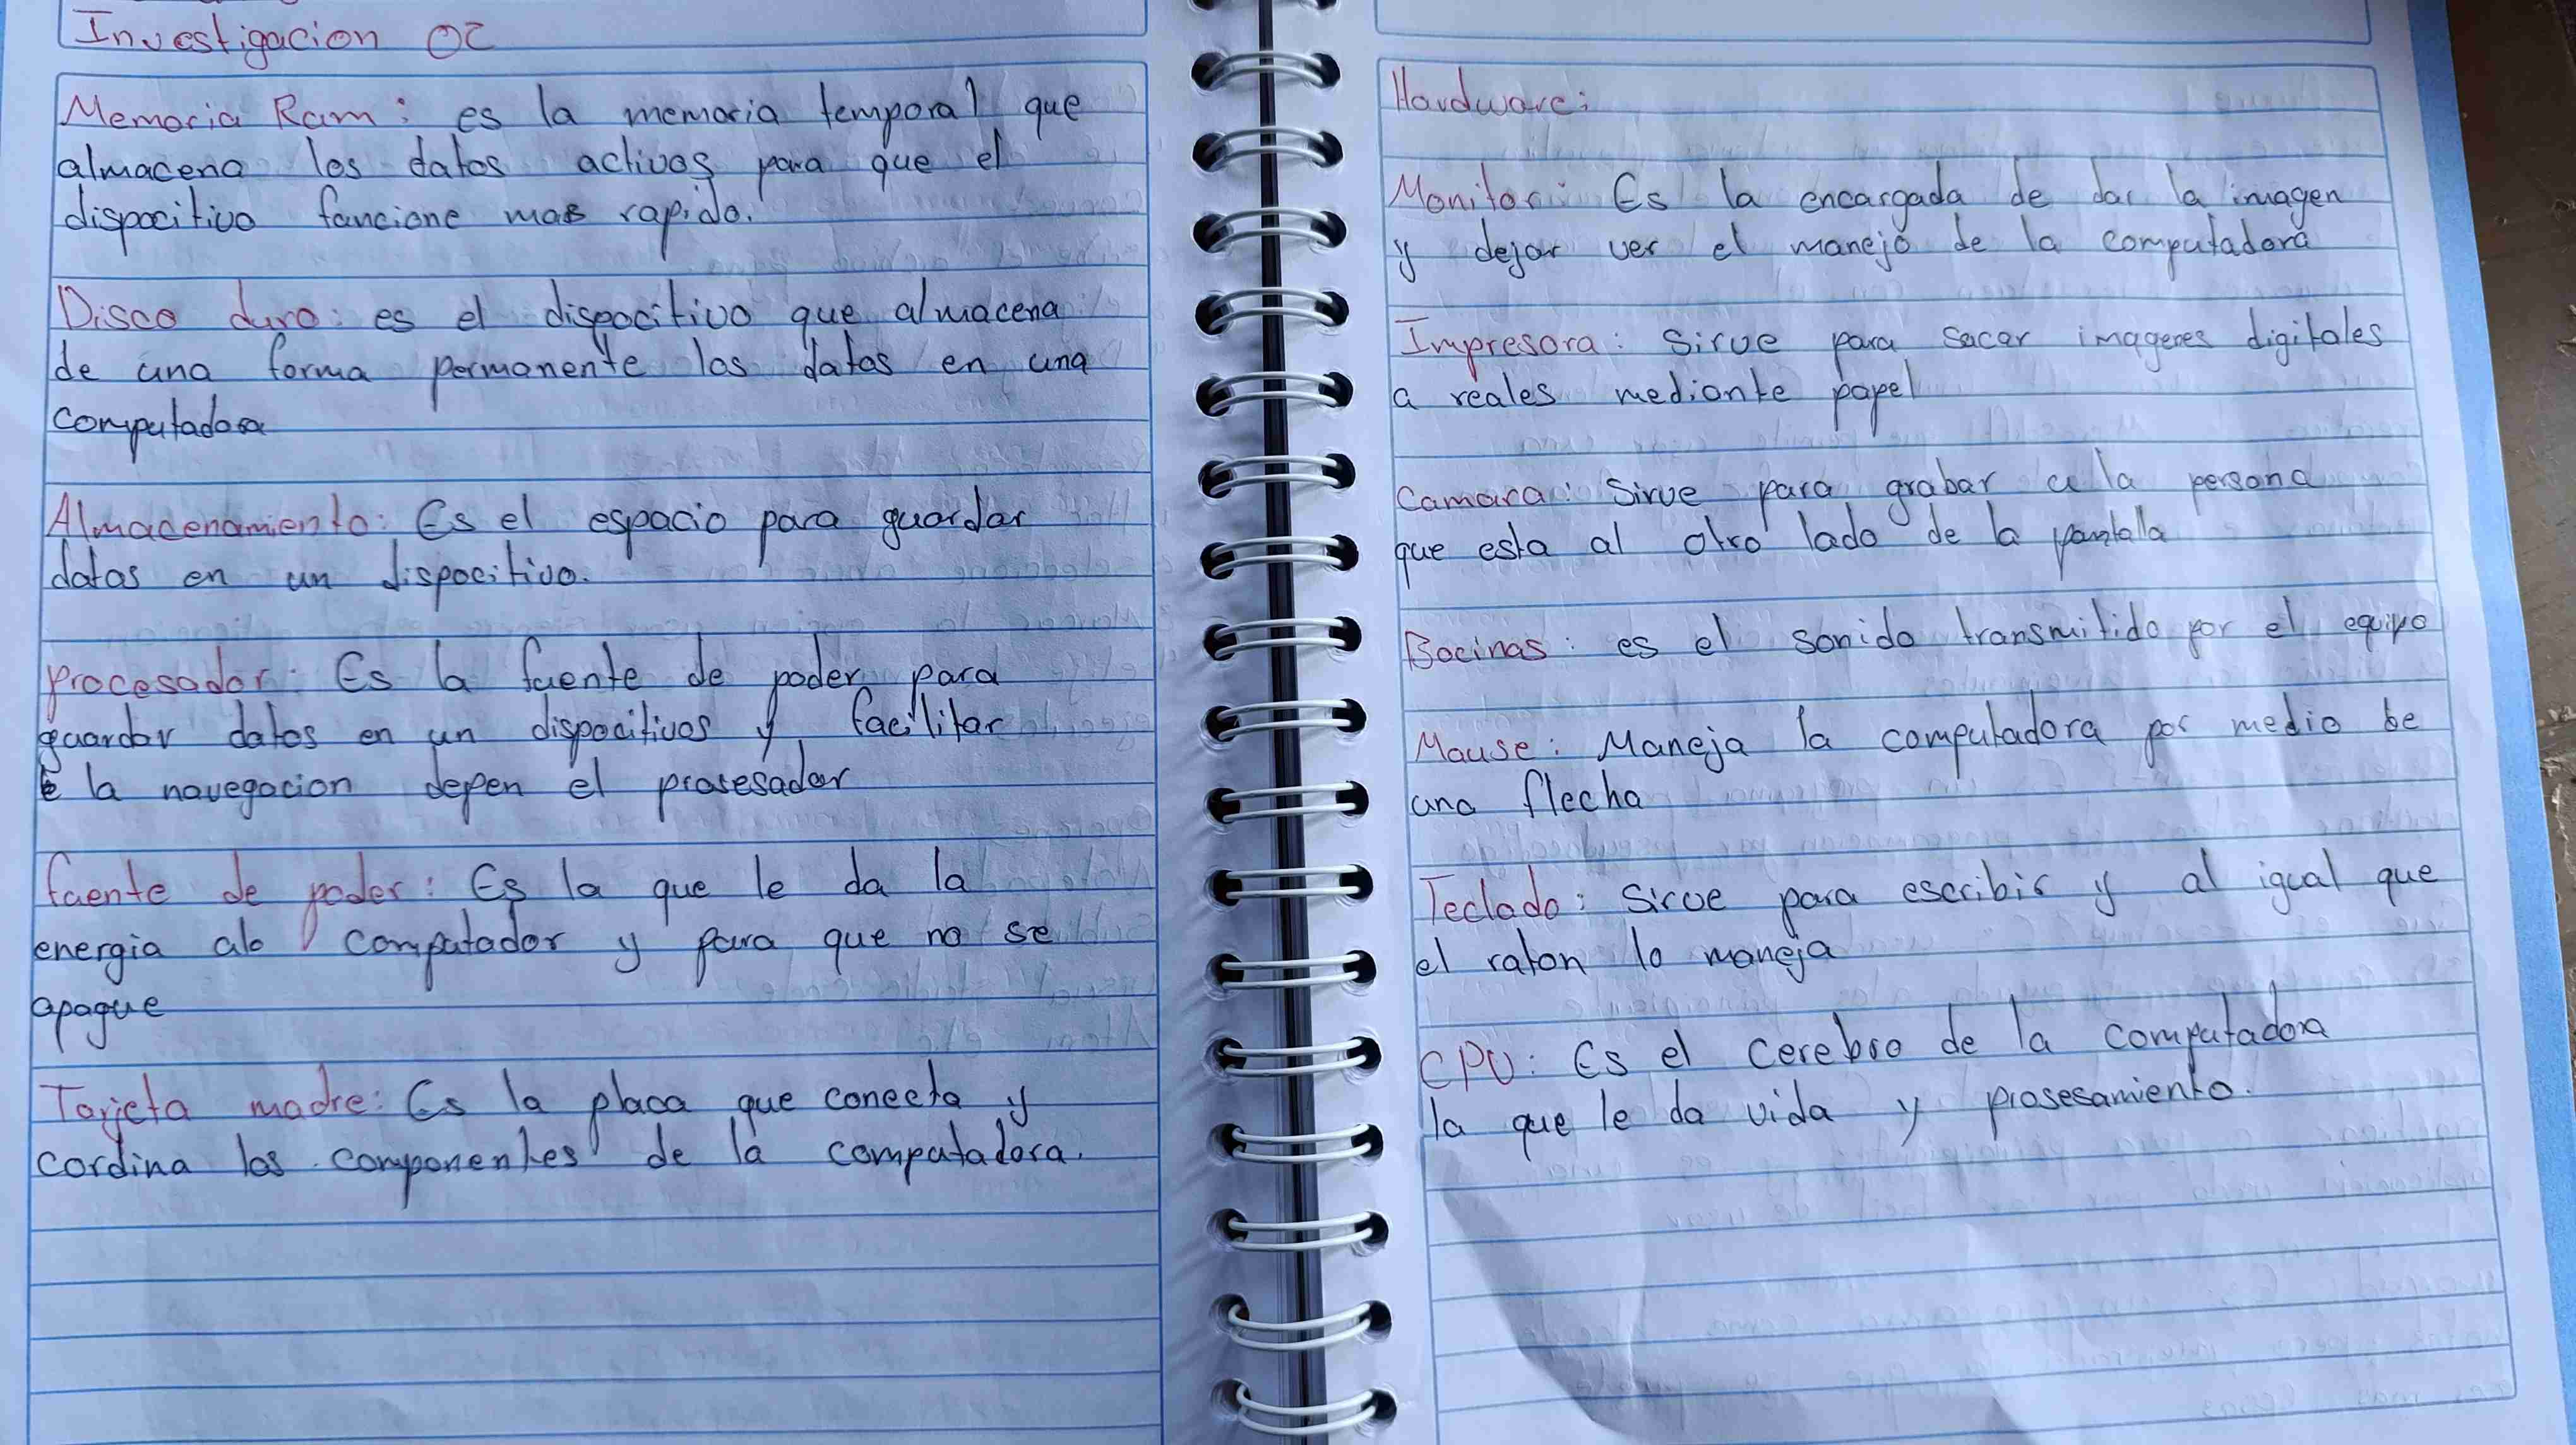 Investigacion OC
Memoria Ram: es la memoria temporal que
almacena los datos activos para que el
dispocitivo funcione mas rapido.
Disco duro: es el dispocitivo que almacena
de una forma permanente los datos en una
computadora
Almacenamiento: Es el espacio para guardar
datos en un dispocitivo.
Procesador: Es la fuente de poder para
guardar datos en un dispocitivos y facilitar
la navegacion depen el prosesador
fuente de poder: Es la que le da la
energia alo computador y para que no se
apague
Tarjeta madre: Es la placa que conecta y
cordina los componentes de la computadora.
Hardware:
Monitor: Es la encargada de dar la imagen
y dejar ver el manejo de la computadora
Impresora: Sirve para sacar imagenes digitales
a reales mediante papel
Camara: Sirve para grabar a la persona
que esta al otro lado de la pantalla
Bocinas: es el sonido transmitido por el equipo
Mause: Maneja la computadora por medio be
una flecha
Teclado: Sirve para escribir y al igual que
el raton lo maneja
CPU: Es el cerebro de la computadora
la que le da vida y prosesamiento.